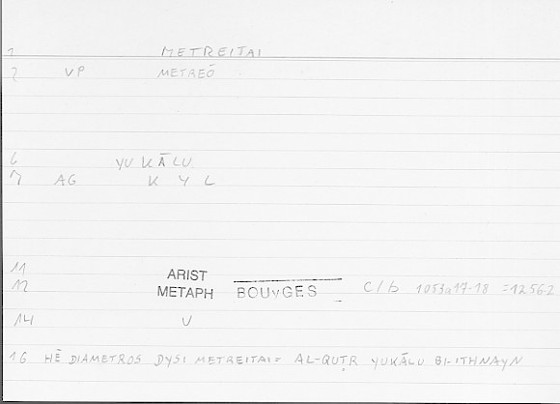 1 METREITAI
2 VP METREŌ
6 YUKĀLU
7 AG K Y L
11 ARIST
12 METAPH BOUvGES C/b 1053a17-18 = 1256.2
14 V
16 HĒ DIAMETROS DYSI METREITAI = AL-QUṬR YUKĀLU BI-ITHNAYN